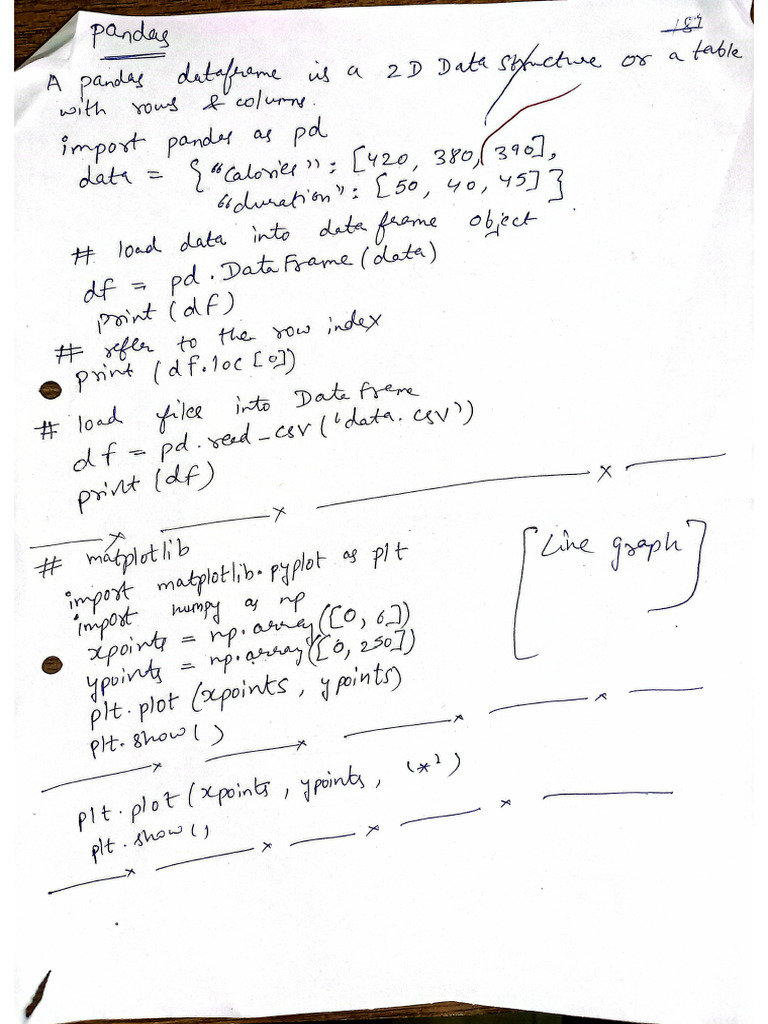 189
Pandas
A pandas dataframe is a 2D Data structure or a table
with rows & columns.
import pandas as pd
data = { "calories" : [420, 380, 390],
"duration" : [50, 40, 45] }
# load data into data frame object
df = pd.DataFrame(data)
print (df)
# refer to the row index
print (df.loc[0])
# load files into Data Frame
df = pd.read_csv('data.csv')
print (df)
x x x
# matplotlib
import matplotlib.pyplot as plt
[Line graph]
import numpy as np
xpoints = np.array([0, 6])
ypoints = np.array([0, 250])
plt.plot (xpoints, ypoints)
plt.show()
x x x x
plt.plot (xpoints, ypoints, '*')
plt.show()
x x x x